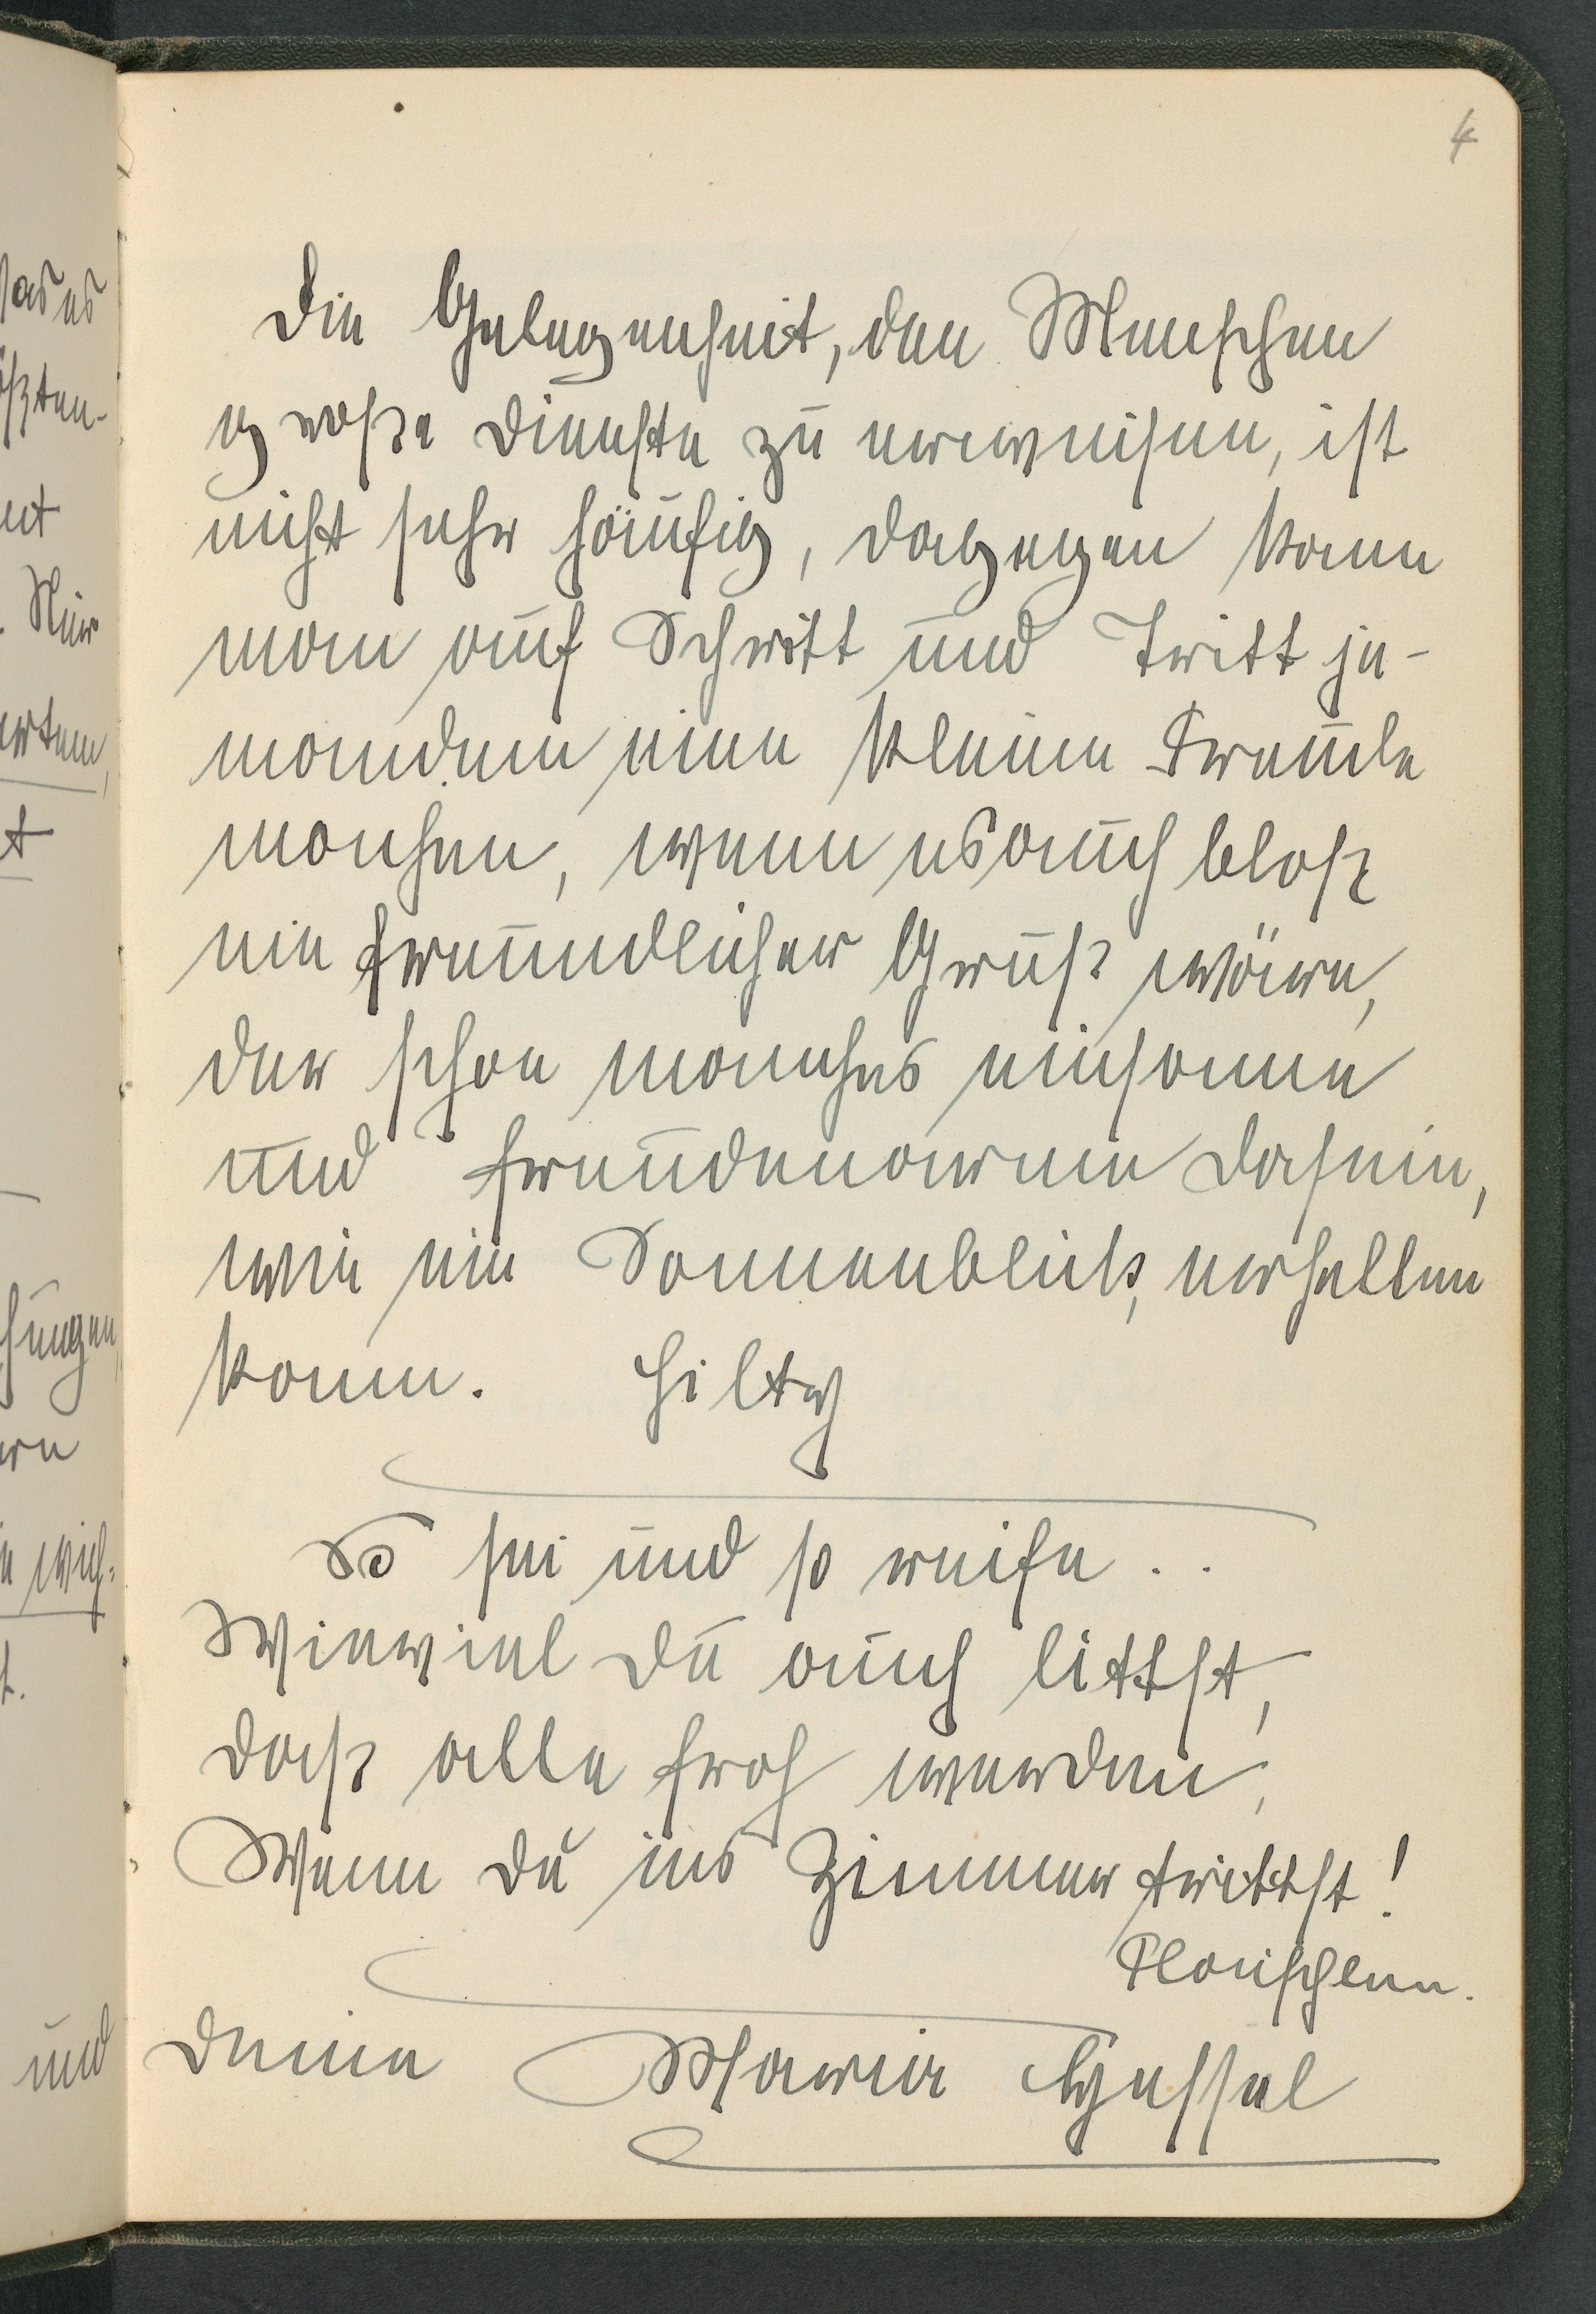 4
Die Gelegenheit, den Menschen
große Dienste zu erweisen, ist
nicht sehr häufig, dagegen kann
man auf Schritt und Tritt je-
mandem eine kleine Freude
machen, wenn es auch bloß
ein freundlicher Gruß wäre,
der schon manches einsame
und freudenarme Dasein,
wie ein Sonnenblick, erhellen
kann. Hilty
So sei und so reife . .
Wieviel Du auch littst,
daß alle froh werden,
Wenn Du ins Zimmer trittst!
Flaischlen.
Deine Marie Gessel